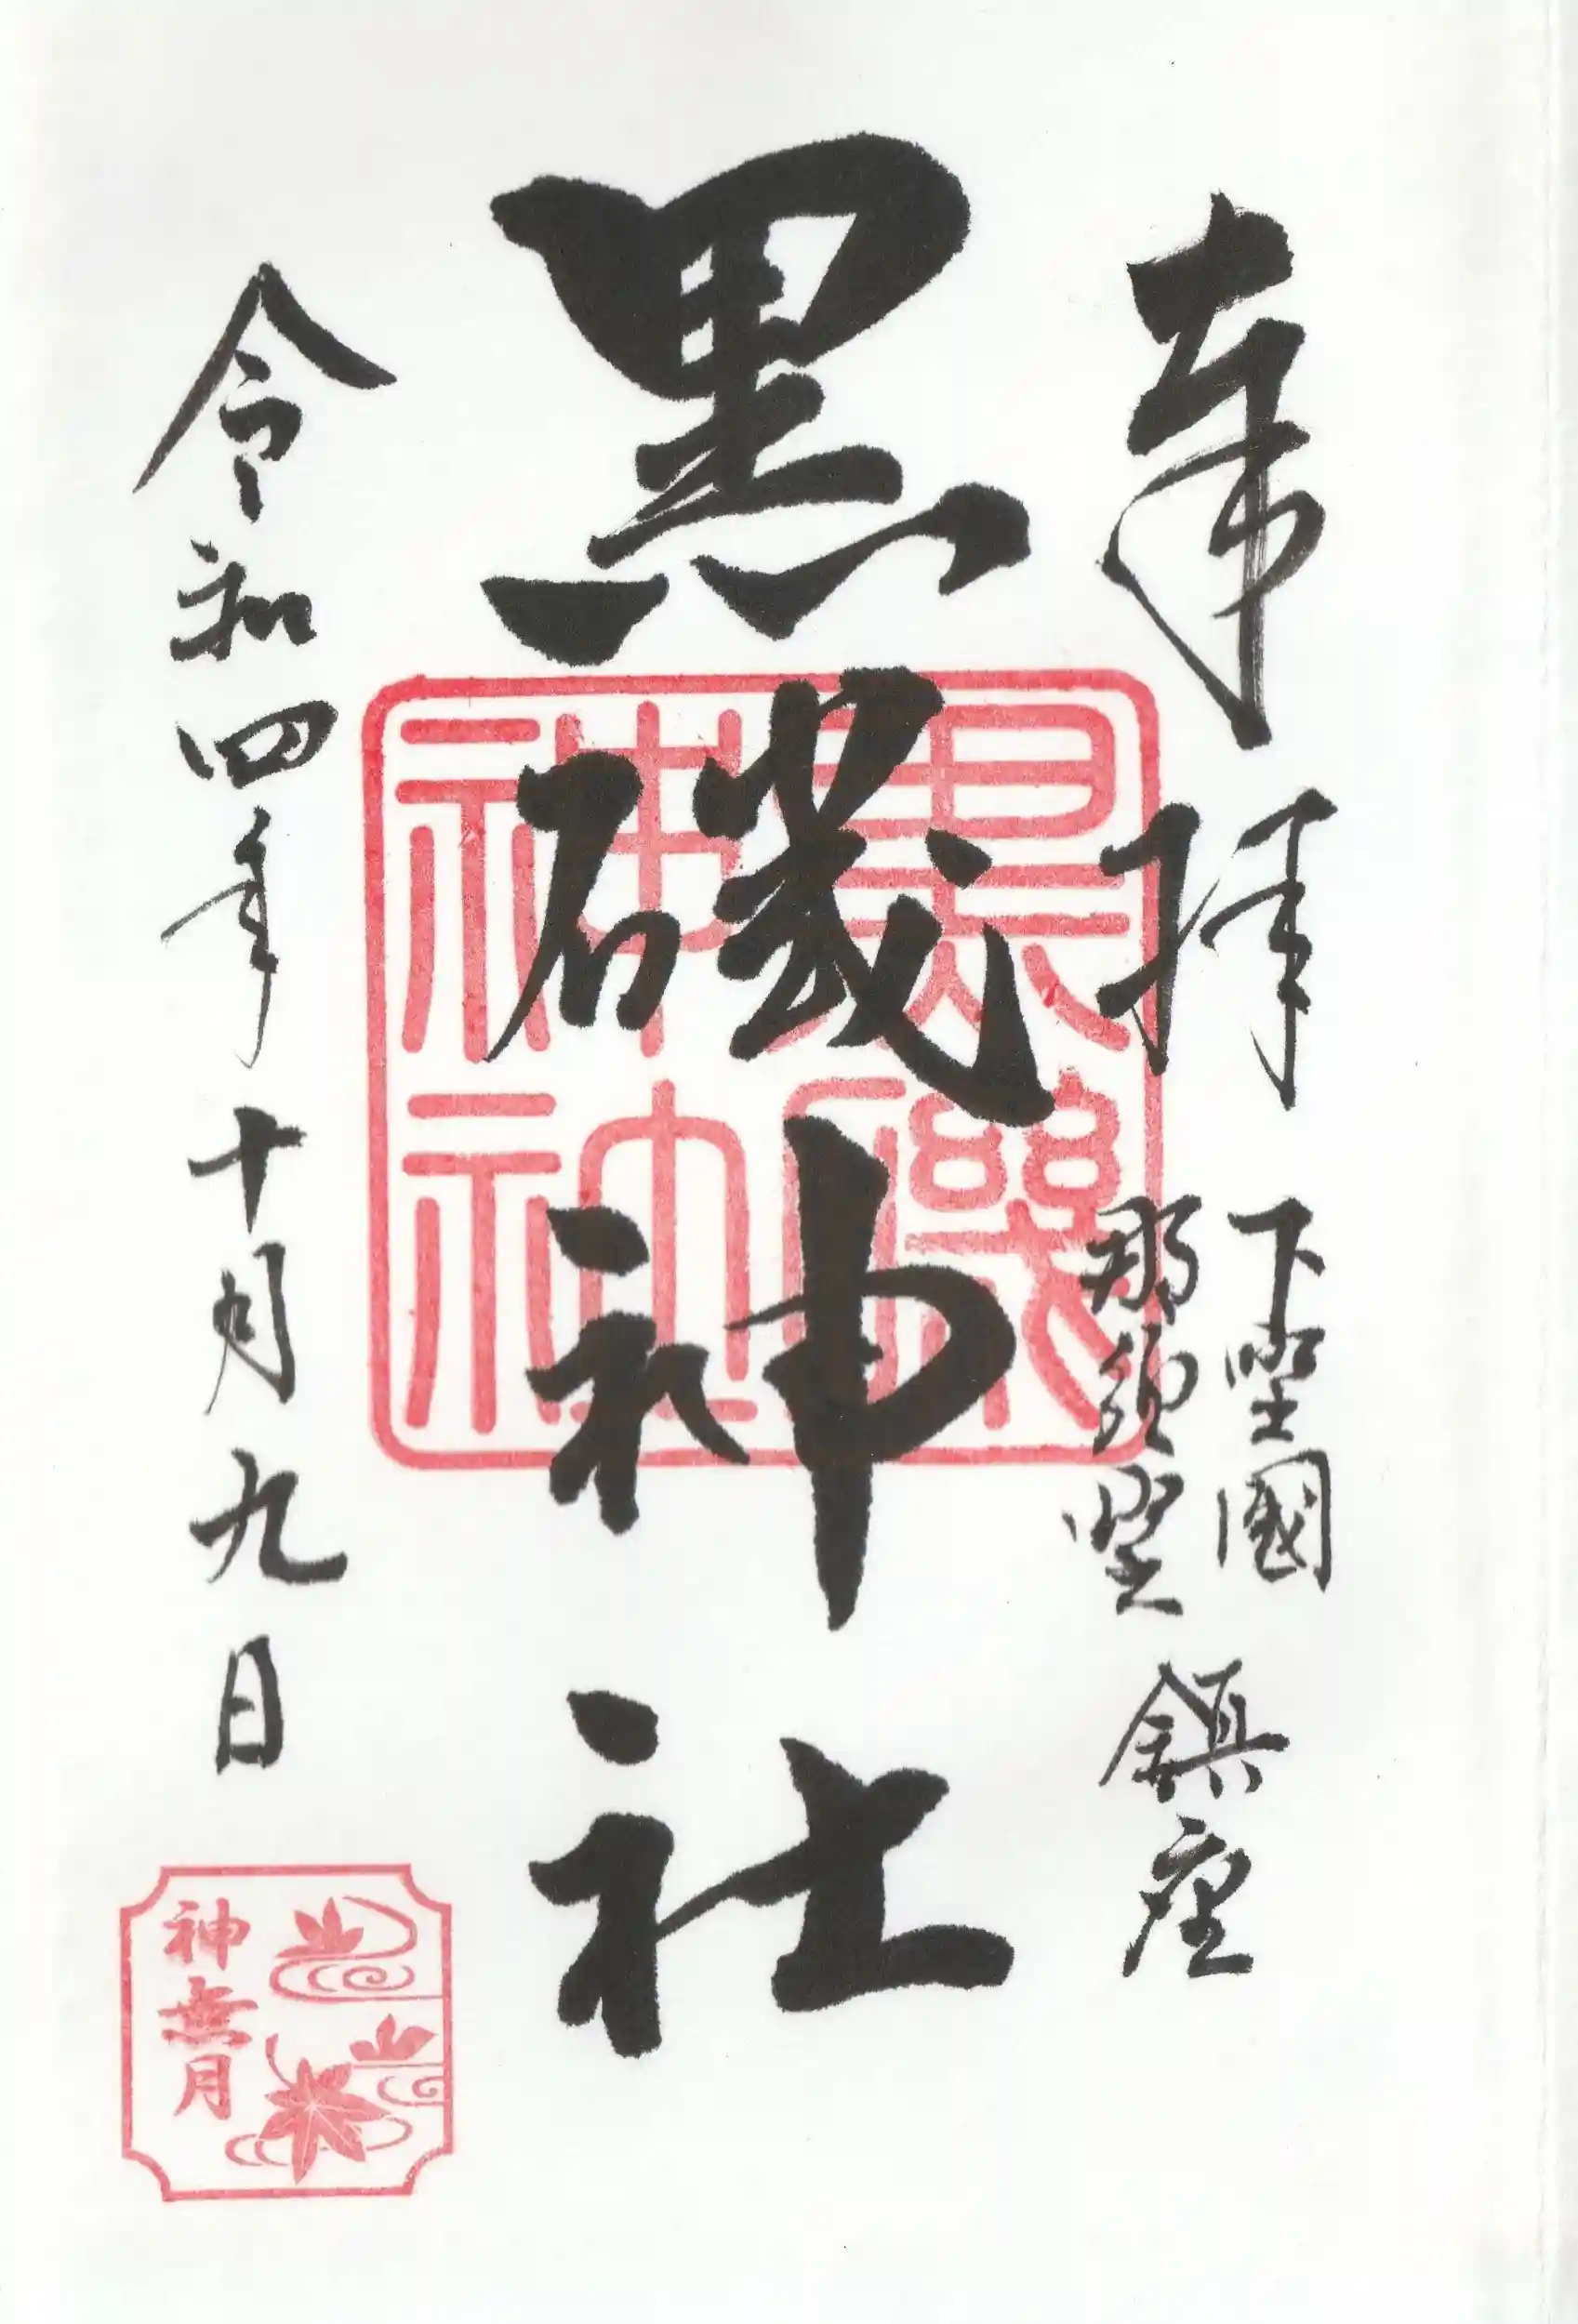 奉拝
下墅國
那須墅
鎮座
黒磯神社
黒磯
神社
令和四年十月九日
神無月